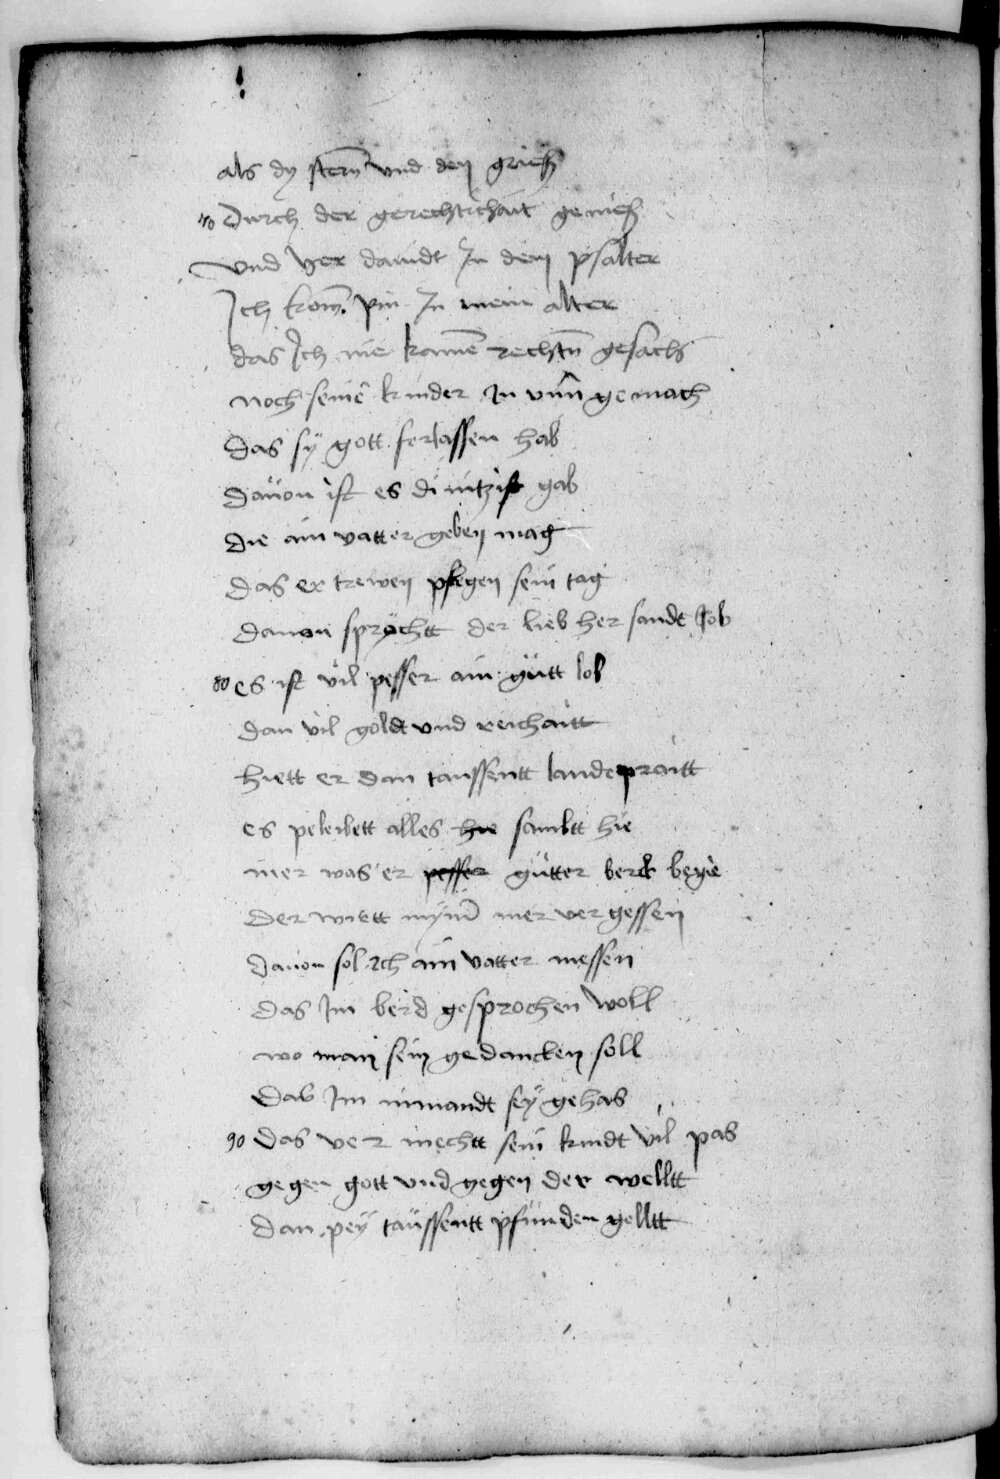 als dy stern und den grieß
70 Durch der gerechtichait genieß
Und her dauidt In dem psalter
Ich kom pin In mein alter
das Ich nie kainē rechtn gesach
noch seinē kinder In vnngemach
das sÿ gott ferlassen hab
Dauon ist es di nützist gab
die ain vatter geben mag
das er trewen pflegen sein tag
Dauon sprÿchtt der lieb her sandt Job
80 es ist vil pesser ain gütt lob
dan vil goldt und reichaitt
hiett er dan taussentt landt praitt
es peleibett alles sambtt hie
mer was er gütter berck begie
der wirtt nÿmer mer vergessen
dauon sol sich ain vatter messen
das Im berd gesprochen woll
wo man sein gedancken soll
Dab Im nimandt seÿ gehas
90 das ver mechtt sein kindt vil pas
gegen gott und gegen der welltt
dan peÿ taussentt pfunden gelltt